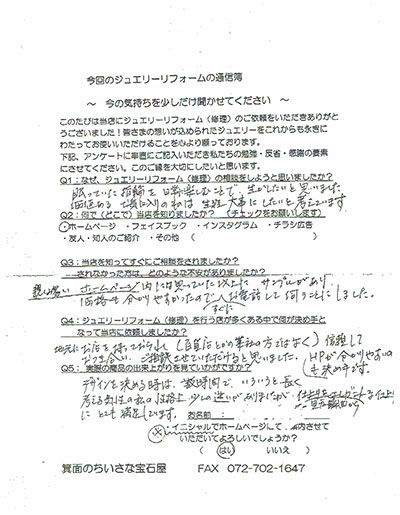 今回のジュエリーリフォームの通信簿
～ 今の気持ちを少しだけ聞かせてください ～
このたびは当店にジュエリーリフォーム（修理）のご依頼をいただきありがと
うございました！皆さまの想いが込められたジュエリーをこれからも永きに
わたってお使いいただけることを心より願っております。
下記、アンケートに率直にご記入いただき私たちの勉強・反省・感謝の要素
にさせてください。このご縁を大切にしたいと思います。
Q1：なぜ、ジュエリーリフォーム（修理）の相談をしようと思いましたか？
眠っていた指輪を日常楽しむことで、生かしたいと思いました
大事にしたいと考えています
Q2：何で（どこで）当店を知りましたか？（チェックをお願いします）
・ホームページ ・フェイスブック ・インスタグラム ・チラシ広告
・友人・知人のご紹介 ・その他 （ ）
Q3：当店を知ってすぐにご相談をされましたか？
されなかった方は、どのような不安がありましたか？
ホームページ内には思っていた以上に サンプルがあり
価格も分かりやすかったので すぐに お電話して伺うことにしました。
Q4：ジュエリーリフォーム（修理）を行う店が多くある中で何が決め手と
なって当店に依頼しましたか？
地元にお店を持っており（百貨店とかの業者の方ではなく）信頼して
お付き合い、ご相談させていただけると思いました。（HPが分かりやすいの
も決め手です。
Q5：実際の商品の出来上がりを見ていかがですか？
デザインを決める時は、数時間で、いろいろと長く
考える私の性格上、少しの迷いがありましたが、仕上り
にとても満足しています。
お名前：
・イニシャルでホームページにて、ご案内させて
いただいてよろしいでしょうか？
（ はい いいえ ）
箕面のちいさな宝石屋 FAX 072-702-1647